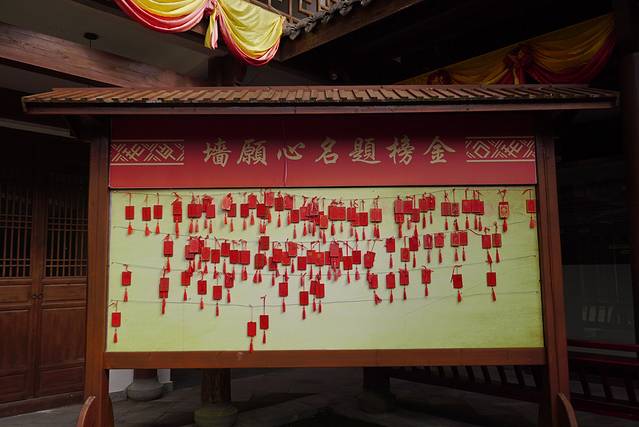 金榜題名心願墙